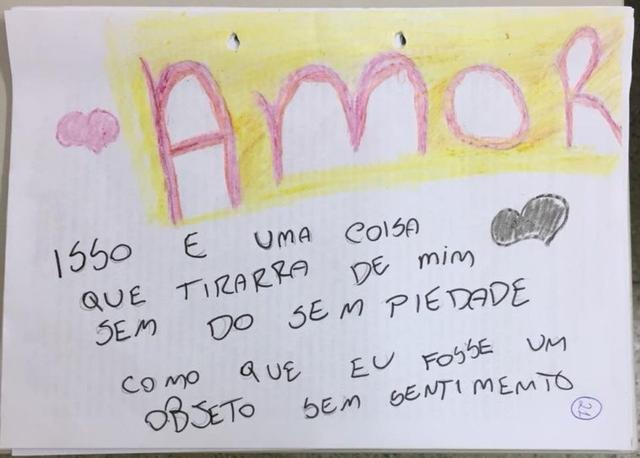 AMOR
ISSO E UMA COISA
QUE TIRARRA DE MIM
SEM DO SEM PIEDADE
COMO QUE EU FOSSE UM
OBJETO SEM SENTIMEMTO